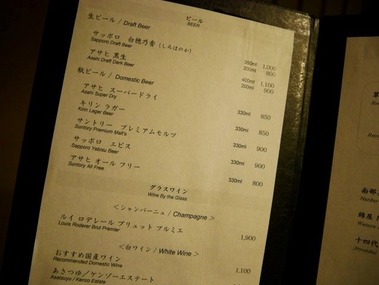 ビール
BEER
生ビール / Draft Beer
サッポロ 白穂乃香 (しろほのか) 350ml 1,000
Sapporo Draft Beer 200ml 800
アサヒ 黒生 420ml 1,100
Asahi Draft Dark Beer 250ml 900
瓶ビール / Domestic Beer
アサヒ スーパードライ 330ml 850
Asahi Super Dry
キリン ラガー 330ml 850
Kirin Lager Beer
サントリー プレミアムモルツ 330ml 900
Suntory Premium Malt's
サッポロ エビス 330ml 900
Sapporo Yebisu Beer
アサヒ オール フリー 330ml 800
Suntory All Free
グラスワイン
Wine By the Glass
<シャンパーニュ / Champagne>
ルイ ロデレール ブリュット プルミエ 1,900
Louis Roderer Brut Premier
<白ワイン / White Wine>
おすすめ国産ワイン 1,100
Recommended Domestic Wine
あさつゆ／ケンゾーエステート
Asatsuyu / Kenzo Estate
南部
十四代